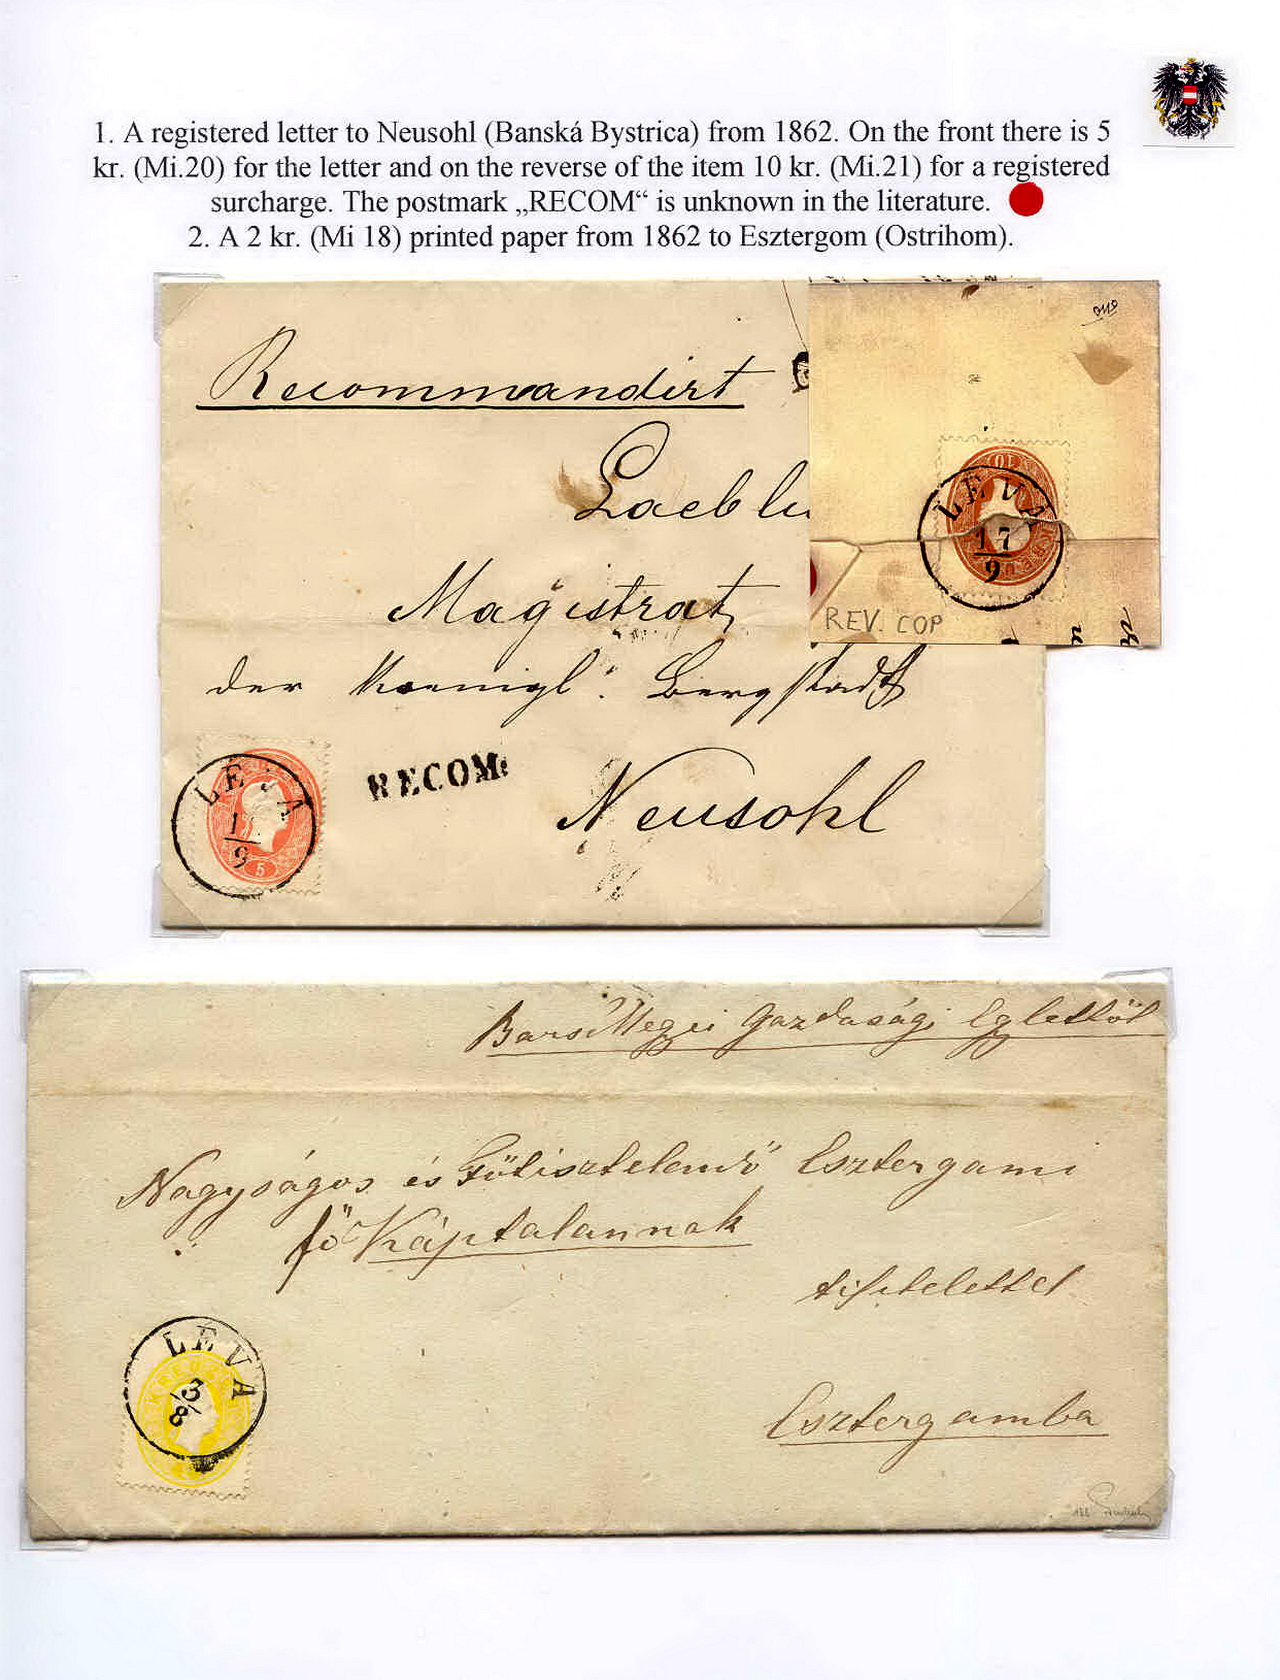 1. A registered letter to Neusohl (Banská Bystrica) from 1862. On the front there is 5
kr. (Mi.20) for the letter and on the reverse of the item 10 kr. (Mi.21) for a registered
surcharge. The postmark „RECOM“ is unknown in the literature.
2. A 2 kr. (Mi 18) printed paper from 1862 to Esztergom (Ostrihom).
Recommandirt
Loebl
LEVA
17
9
REV. COP
Magistrat
der Koenigl: Bergstadt
LEVA
9
5
RECOM:
Neusohl
Bars Megyei Gazdasági Eglettöl
Nagyságos és Főtisztelendő Esztergami
fő Káptalannak
tisztelettel
LÉVA
3
8
Esztergamba